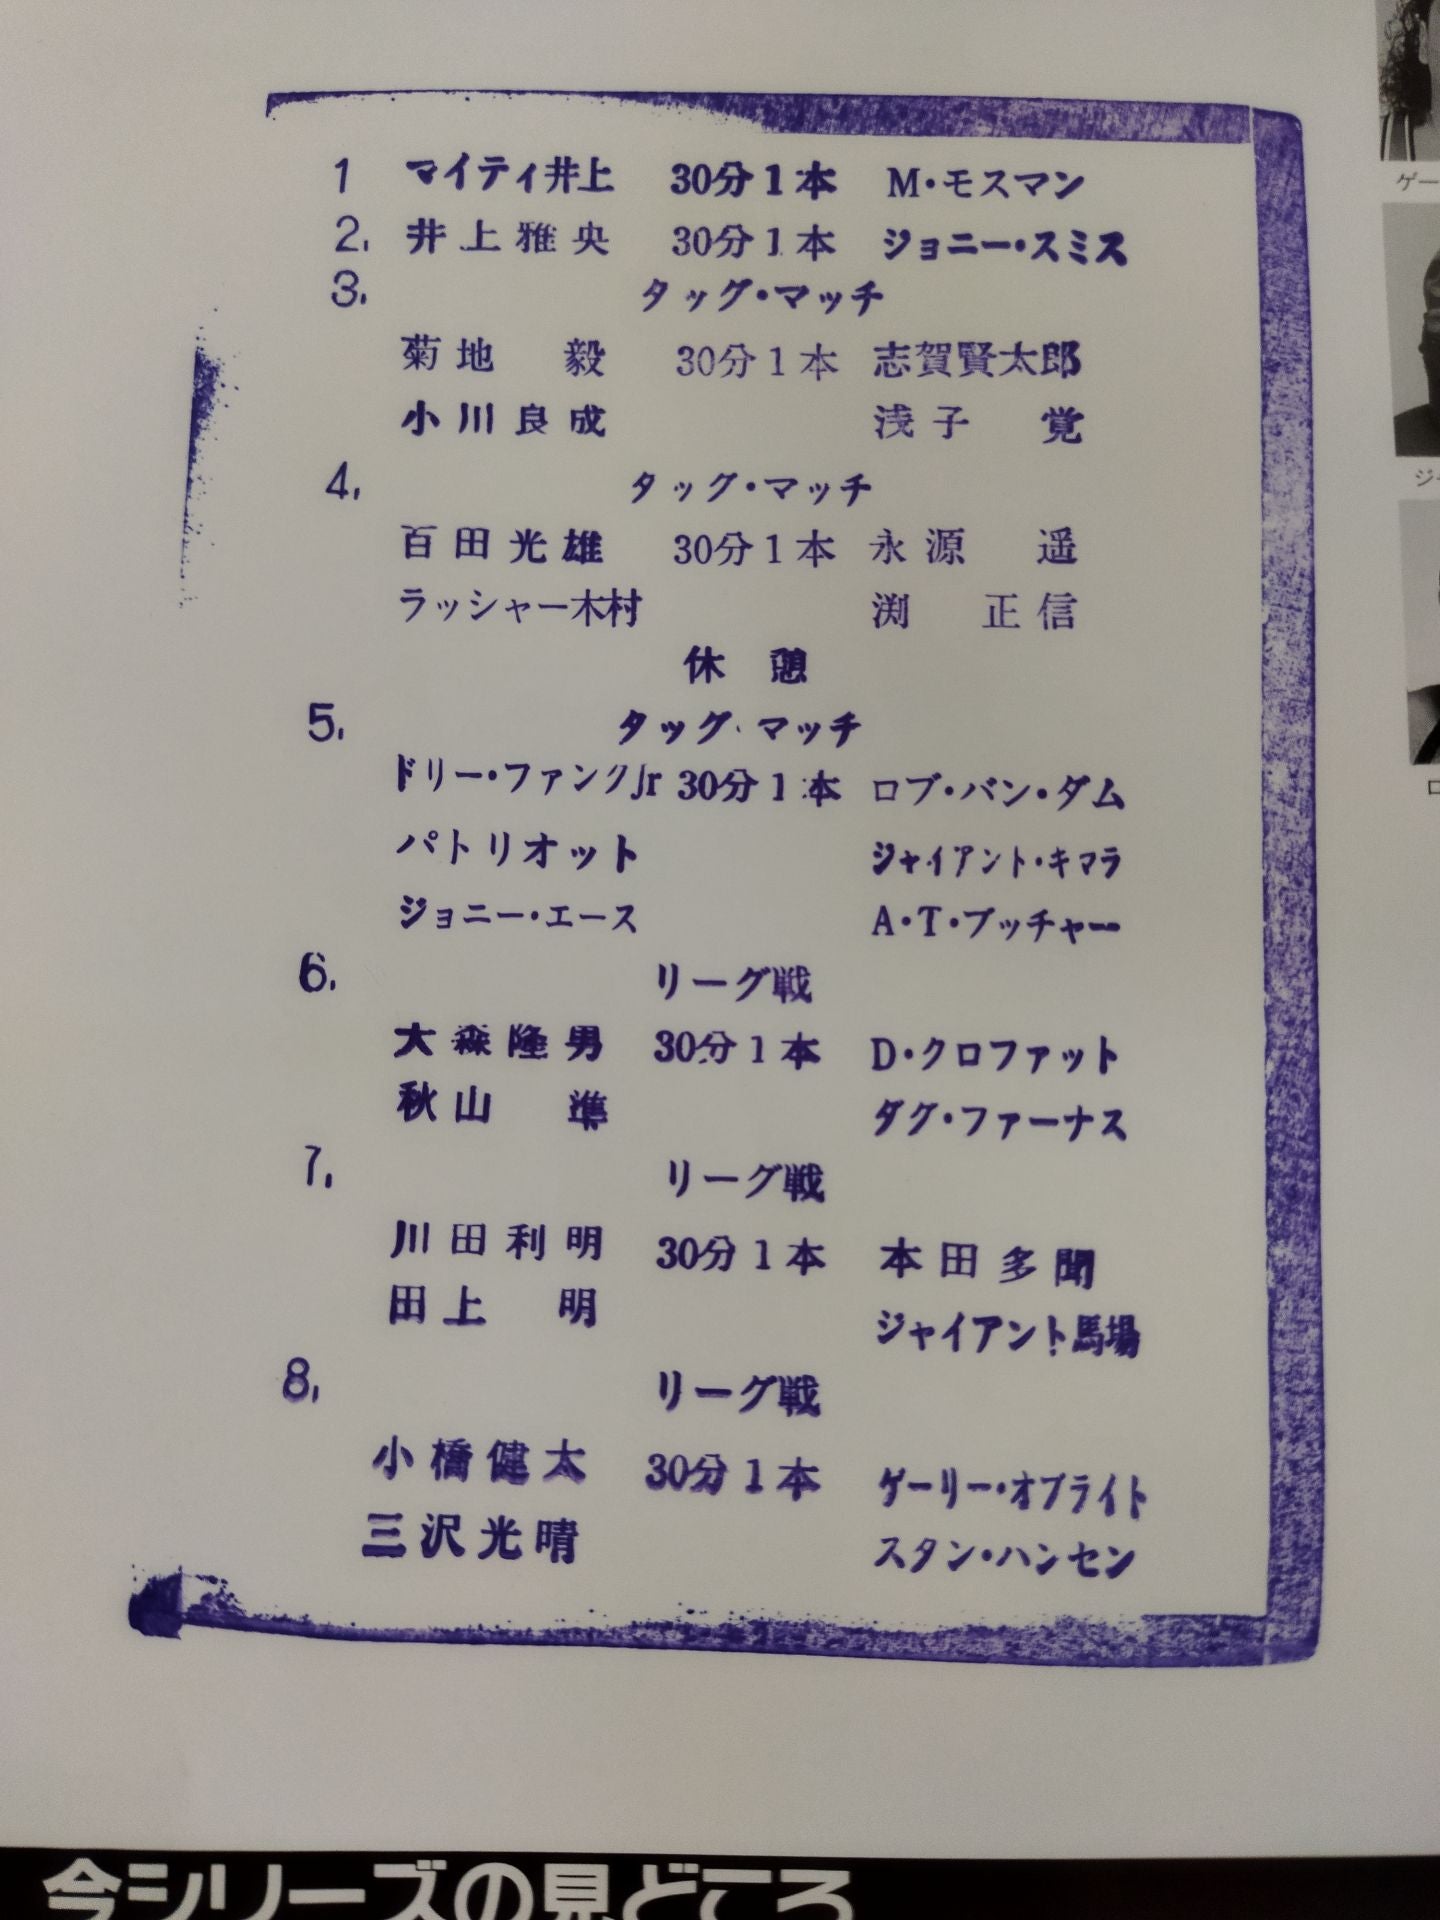 1 マイティ井上 30分1本 M・モスマン
2. 井上雅央 30分1本 ジョニー・スミス
3. タッグ・マッチ
菊地 毅 30分1本 志賀賢太郎
小川良成 浅子 覚
4. タッグ・マッチ
百田光雄 30分1本 永源 遥
ラッシャー木村 渕 正信
休憩
5. タッグ・マッチ
ドリー・ファンクJr 30分1本 ロブ・バン・ダム
パトリオット ジャイアント・キマラ
ジョニー・エース A・T・ブッチャー
6. リーグ戦
大森隆男 30分1本 D・クロファット
秋山 準 ダグ・ファーナス
7. リーグ戦
川田利明 30分1本 本田多聞
田上 明 ジャイアント馬場
8. リーグ戦
小橋健太 30分1本 ゲーリー・オブライト
三沢光晴 スタン・ハンセン
ゲー
ジ
ロ
今シリーズの見どころ